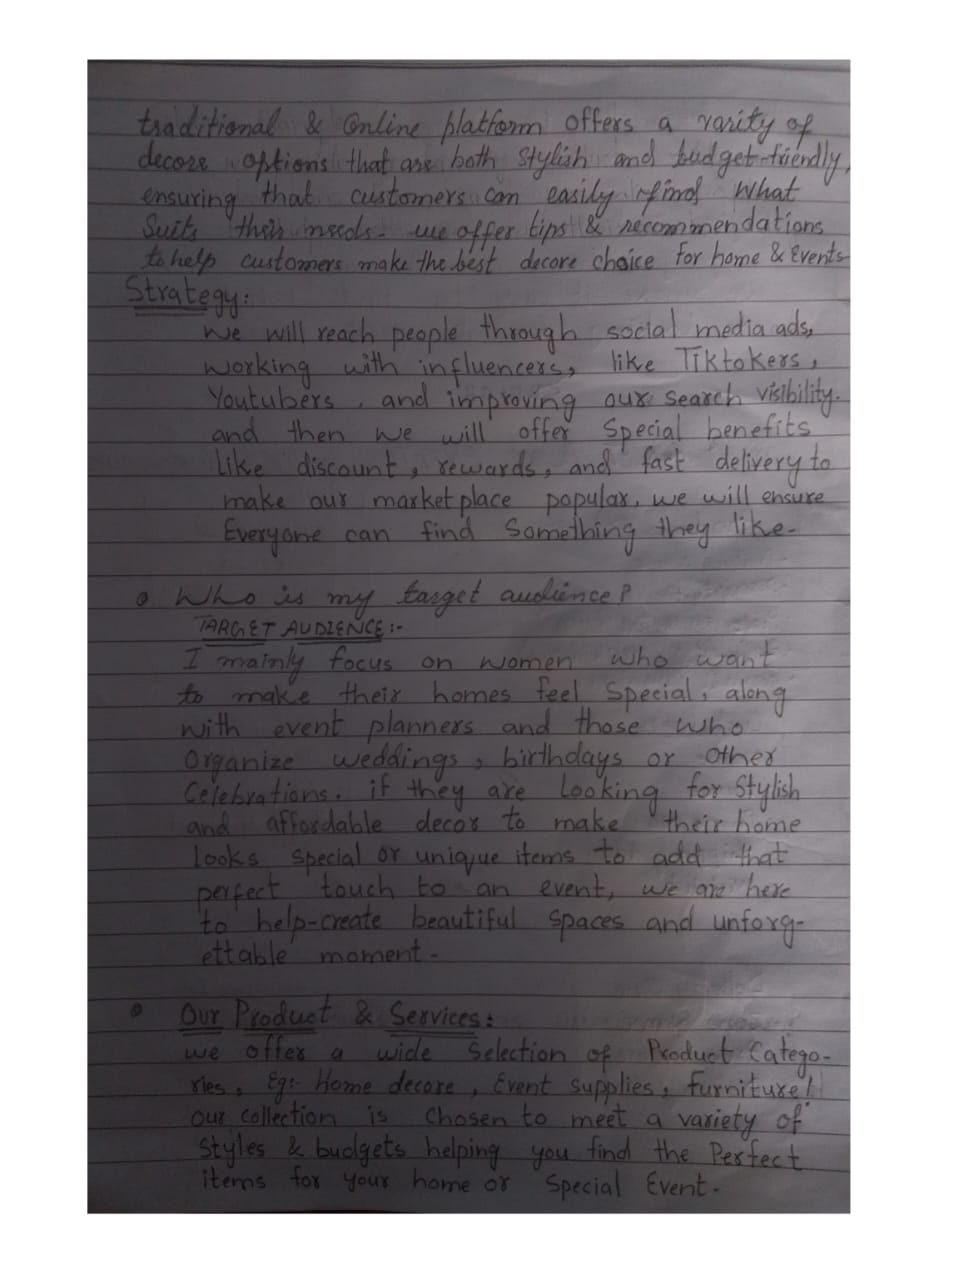 traditional & Online platform offers a varity of
decore options that are both stylish and budget-friendly,
ensuring that customers can easily find what
Suits their needs. we offer tips & recommendations
to help customers make the best decore choice for home & Events
Strategy:
We will reach people through social media ads,
working with influencers, like Tiktokers,
Youtubers, and improving our search visibility.
and then we will offer Special benefits
like discount, rewards, and fast delivery to
make our market place popular. we will ensure
Everyone can find Something they like.
• Who is my target audience?
TARGET AUDIENCE:-
I mainly focus on women who want
to make their homes feel Special, along
with event planners and those who
Organize weddings, birthdays or other
Celebrations. if they are Looking for Stylish
and affordable decor to make their home
looks special or unique items to add that
perfect touch to an event, we are here
to help-create beautiful spaces and unforg-
ettable moment.
• Our Product & Services:
we offer a wide Selection of Product Catego-
ries, Eg:- Home decore, Event supplies, furniture!
our collection is Chosen to meet a variety of
Styles & budgets helping you find the Perfect
items for your home or Special Event.